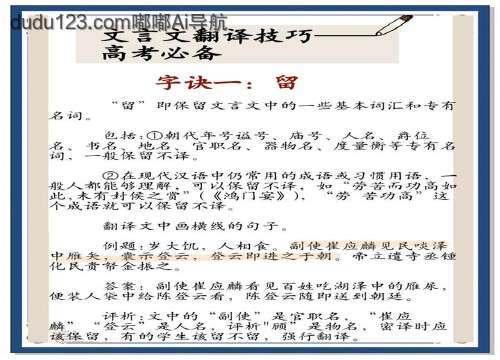 dudu123.com嘟嘟Ai导航
文言文翻译技巧——
高考必备
字诀一：留
“留”即保留文言文中的一些基本词汇和专有
名词。
包括:①朝代年号谥号、庙号、人名、爵位
名、书名、地名、官职名、器物名、度量衡等专有名
词，一般保留不译。
②在现代汉语中仍常用的成语或习惯用语，一
般人都能够理解，可以保留不译，如“劳苦而功高如
此,未有封侯之赏”(《鸿门宴》)，“劳 苦功高”这
个成语就可以保留不译。
翻译文中画横线的句子。
例题:岁大饥，人相食。副使崔应麟见民啖泽
中雁矢，囊示登云，登云即进之于朝。帝立遣寺丞锺
化民赍帑金振之。
答案: 副使崔应麟看见百姓吃湖泽中的雁屎，
便装入袋中给陈登云看，陈登云随即送到朝廷。
评析:文中的“副使”是官职名，“崔应
麟”“登云”是人名，评析"顾”是物名，密译时应
该保留，有的学生该留不留，强行翻译。